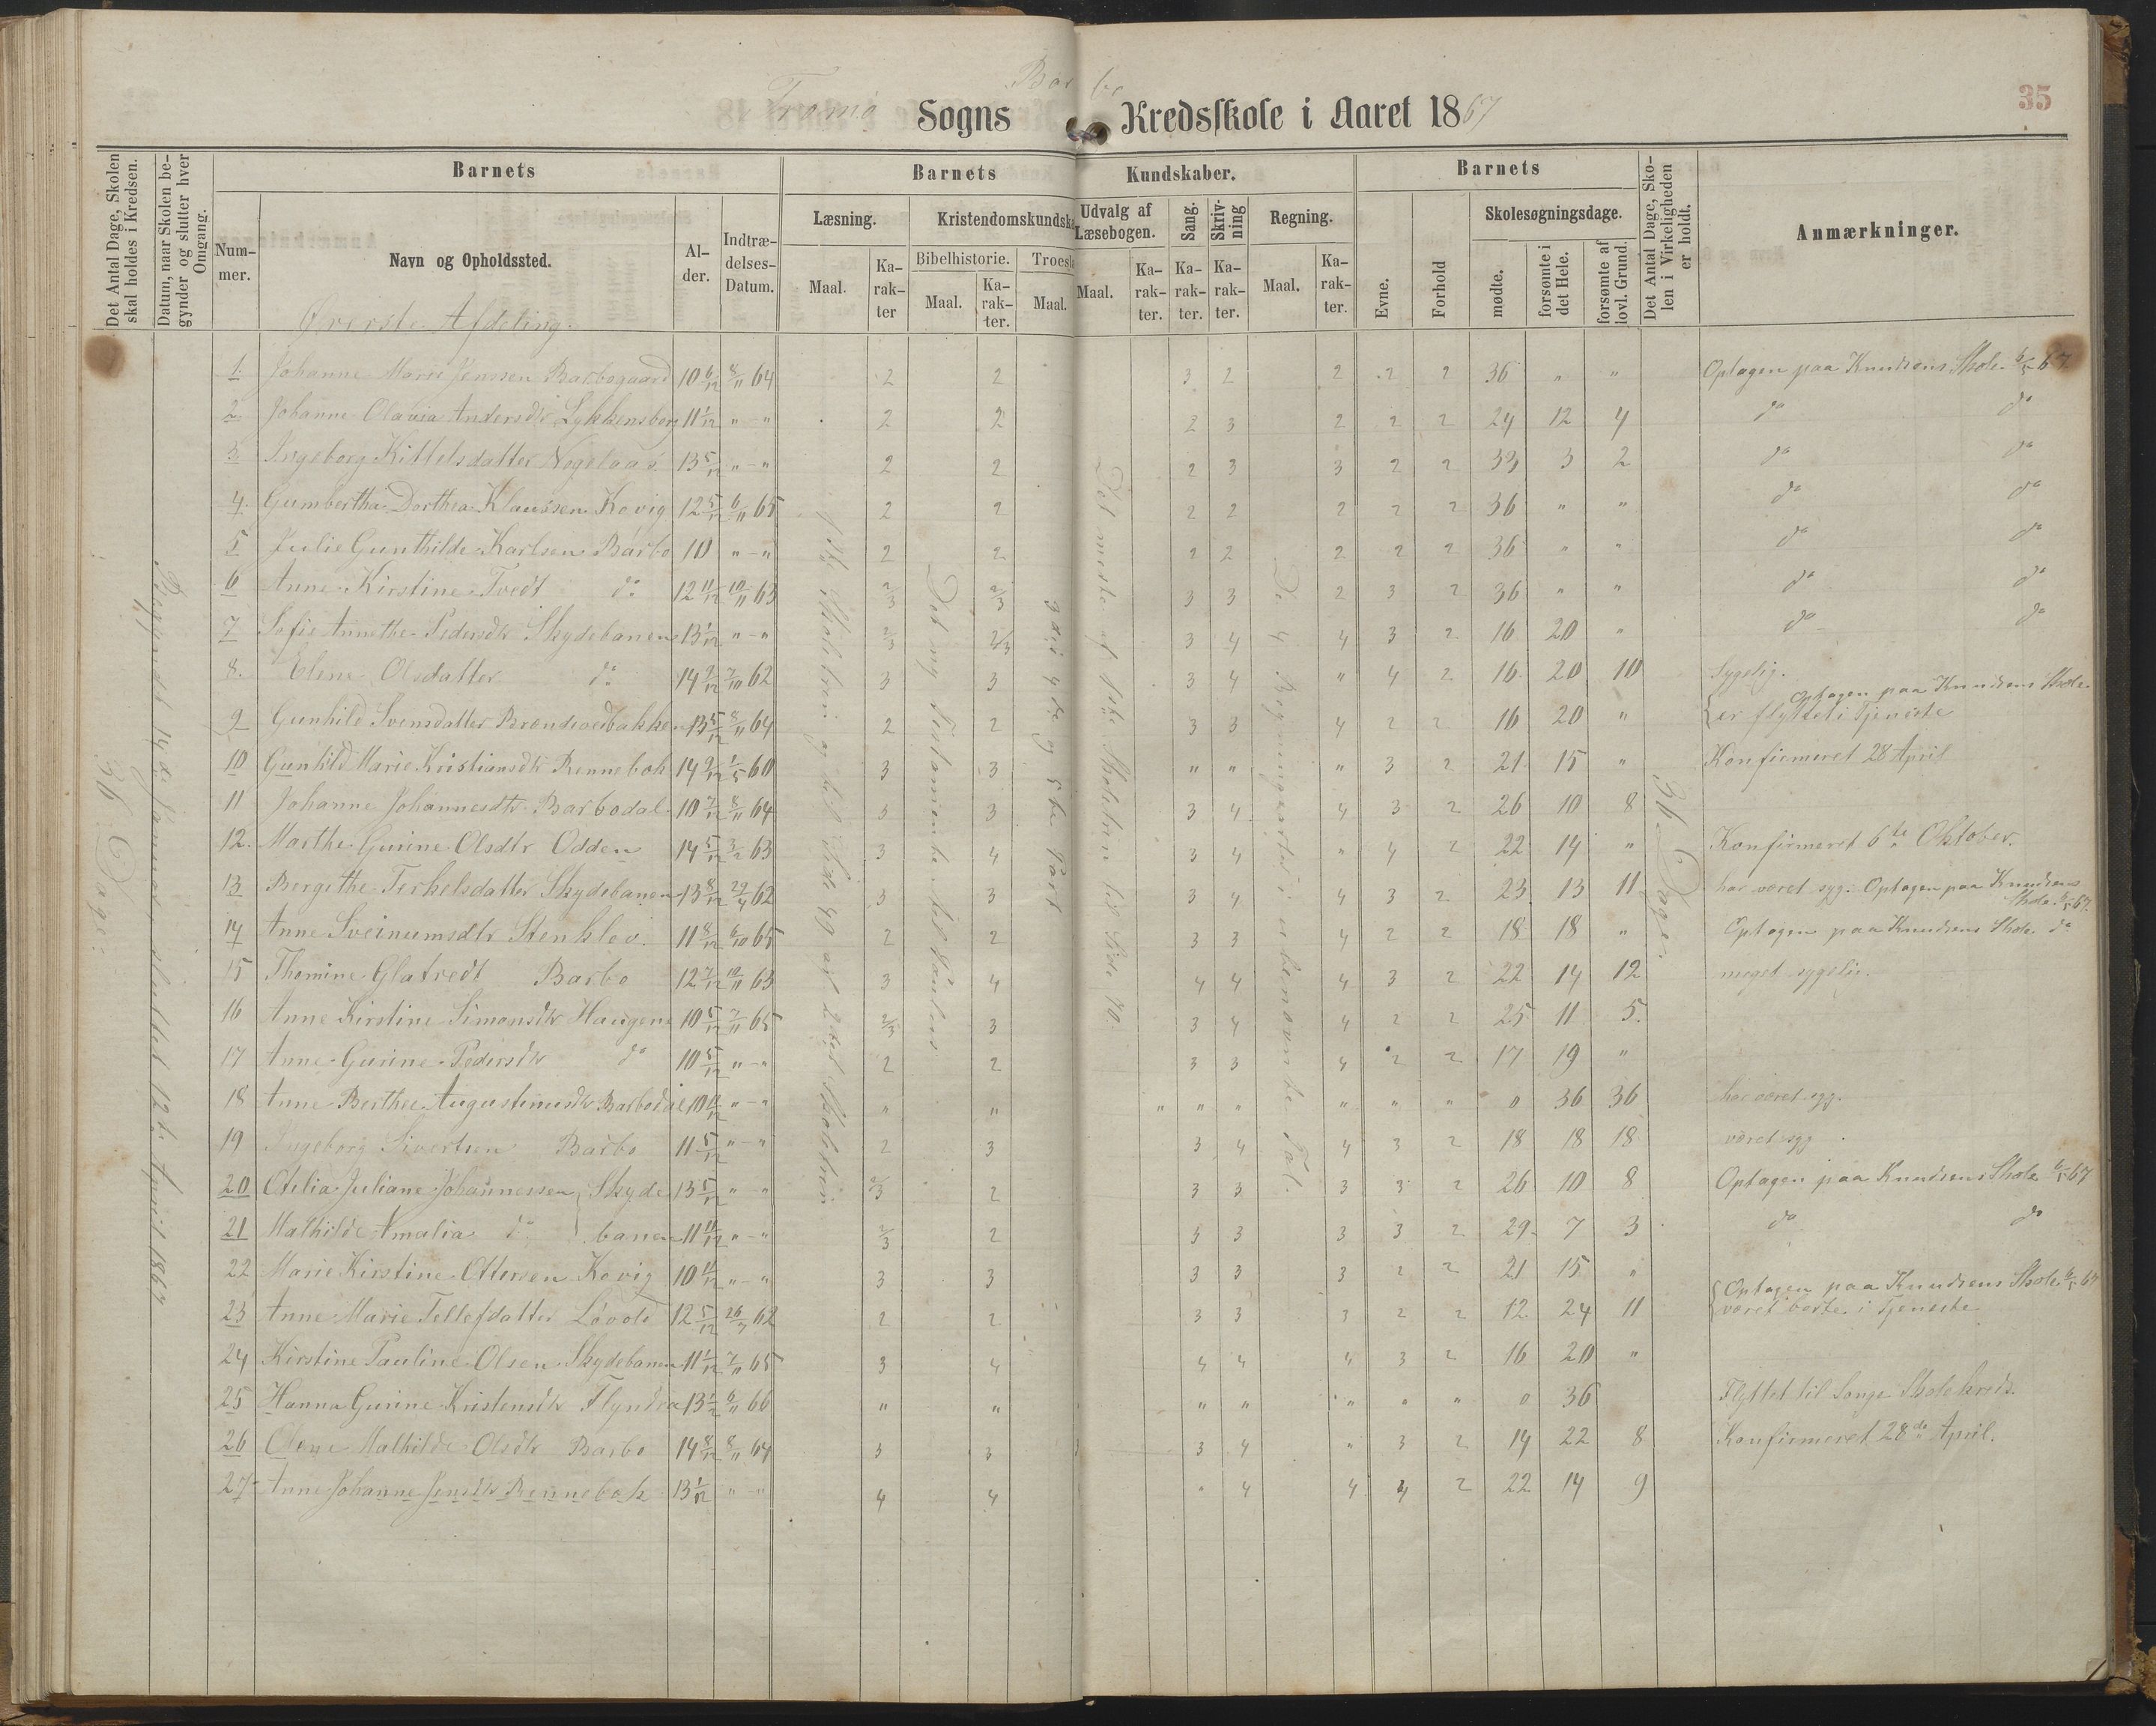 Barbo
35
Tromø Sogns Kredsskole i Aaret 1867
Det Antal Dage, Skolen skal holdes i Kredsen.
Datum, naar Skolen begynder og slutter hver Omgang.
Barnets
Barnets Kundskaber.
Barnets
Det Antal Dage, Skolen i Virkeligheden er holdt.
Anmærkninger.
Nummer.
Navn og Opholdssted.
Alder.
Indtrædelses-Datum.
Læsning.
Kristendomskundska
Udvalg af Læsebogen.
Sang.
Skrivning
Regning.
Evne.
Forhold
Skolesøgningsdage.
Bibelhistorie.
Troesl
mødte.
forsømte i det Hele.
forsømte af lovl. Grund.
Maal.
Karakter
Maal.
Karakter.
Maal.
Maal.
Karakter.
Karakter.
Karakter.
Maal.
Karakter.
Øverste Afdeling.
36 Dage.
Begyndt 14de Januar, sluttet 12te April 1867
Det ny Testamente til Paulus
3die 4de og 5te Part
Det meste af 1ste Skoletrin til Side 70.
De 4 Regningsarter i ubenævnte Tal.
36 Dage.
1. Johanne Marie Jenssen Barbogaard 10 6/12 8/11 64 2 2 3 2 2 2 2 36 " " Optagen paa Knudsens Skole 6/5 67
2. Johanne Olavia Andersdtr Lykkensborg 11 1/12 " - " 2 2 2 3 2 2 2 24 12 4 do do
3. Ingeborg Kittelsdatter Nogelaas 13 5/12 " - " 2 2 2 3 3 2 2 33 3 2 do do
4. Gumbertha Dorthea Klaussen Kovig 12 5/12 6/11 65 2 2 2 2 2 2 2 36 " " do do
5 Julie Gunthilde Karlsen Barbo 10 " - " 2 2 2 2 2 2 2 36 " " do do
6 Anne Kirstine Tvedt do 12 11/12 10/11 63 2/3 2/3 3 3 2 3 2 36 " " do do
7 Sofie Annethe Pedersdtr Skydebanen 13 1/12 " - " 2/3 2/3 3 4 4 3 2 16 20 " do do
8. Elene Olsdatter do 14 2/12 7/10 62 3 3 3 4 " 4 2 16 20 10 Sygelig.
9 Gunhild Svensdatter Brændevedbakken 13 5/12 8/11 64 2 2 3 3 4 2 2 16 20 " Optagen paa Knudsens Skole.
er flyttet i Tjeneste
10 Gunhild Marie Kristiansdtr Rennebok 14 2/12 1/5 60 3 3 " " " 3 2 21 15 " Konfirmeret 28 April
11 Johanne Johannesdtr Barbodal 10 7/12 8/11 64 3 3 3 4 4 3 2 26 10 8
12. Marthe Gurine Olsdtr Odden 14 5/12 3/2 63 3 4 3 4 " 4 2 22 14 " Konfirmeret 6te Oktober.
13 Bergithe Terkelsdatter Skydebanen 13 8/12 29/4 62 3 3 3 4 4 3 2 23 13 11 har været syg. Optagen paa Knudsens
Skole 6/5 67.
14 Anne Sveinumsdtr Stenklev. 11 8/12 6/10 65 2 2 3 3 4 2 2 18 18 " Optagen paa Knudsens Skole do
15 Thomine Glatvedt Barbo 12 7/12 10/11 63 3 4 4 4 4 3 2 22 14 12 meget sygelig.
16 Anne Kirstine Simonsdtr Haugene 10 5/12 7/11 65 2/3 3 3 4 4 2 2 25 11 5.
17 Anne Gurine Pedersdtr do 10 5/12 " - " 2 2 3 3 4 2 2 17 19 "
18 Anne Berthee Augustinusdtr Barbodal 10 11/12 " - " " " " " " " " " 0 36 36 har været syg.
19 Ingeborg Sivertsen Barbo 11 5/12 " - " 2 3 3 4 4 3 2 18 18 18 været syg.
20 Otilia Juliane Johannessen Skyde 13 5/12 " " 2/3 2 3 3 3 3 2 26 10 8 Optagen paa Knudsens Skole 6/5 67
21 Mathilde Amalia do banen 11 11/12 " - " 2/3 2 3 3 3 3 2 29 7 3 do do
22 Marie Kirstine Ottersen Kovig 10 11/12 " - " 3 3 3 3 3 2 2 21 15 "
23 Anne Marie Tellefsdatter Løvold 12 5/12 26/7 62 2 2 3 3 3 2 2 12 24 11 Optagen paa Knudsens Skole 6/5 67
været borte i Tjeneste
24 Kirstine Pauline Olsen Skydebanen 11 1/12 7/11 65 3 4 4 4 4 3 2 16 20 "
25 Hanna Gurine Kristensdtr Flyndea 13 1/2 6/11 66 " " " " " " " 0 36 Flyttet til Songe Skolekreds.
26 Olene Mathilde Olsdtr Barbo 14 8/12 8/11 64 3 3 3 4 " 3 2 14 22 8 Konfirmeret 28de April.
27 Anne Johanne Jensdtr Rennebok 13 1/12 " - " 4 4 " 4 4 4 2 22 14 9